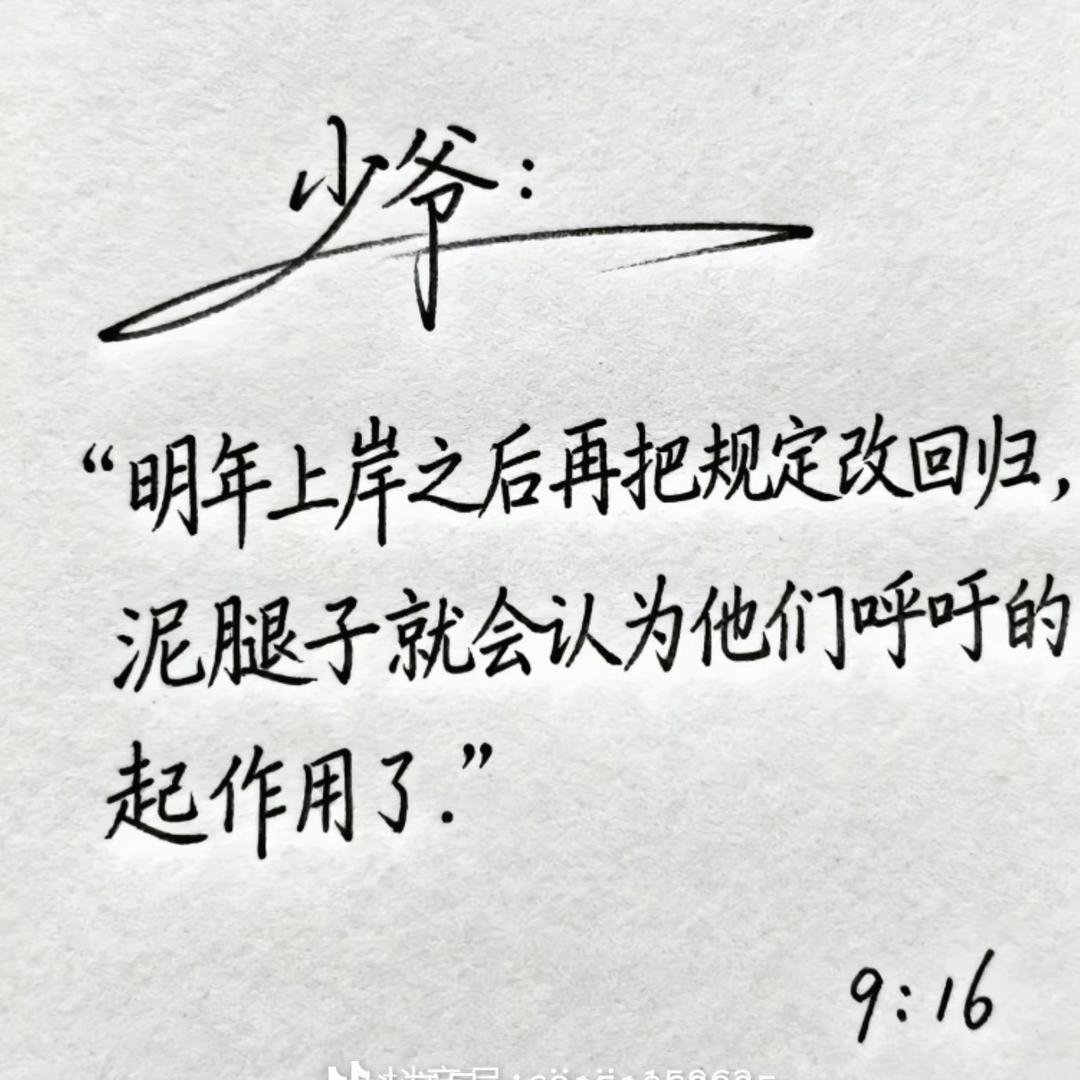 少爷:
“明年上岸之后再把规定改回归,
泥腿子就会认为他们呼吁的
起作用了.”
9:16